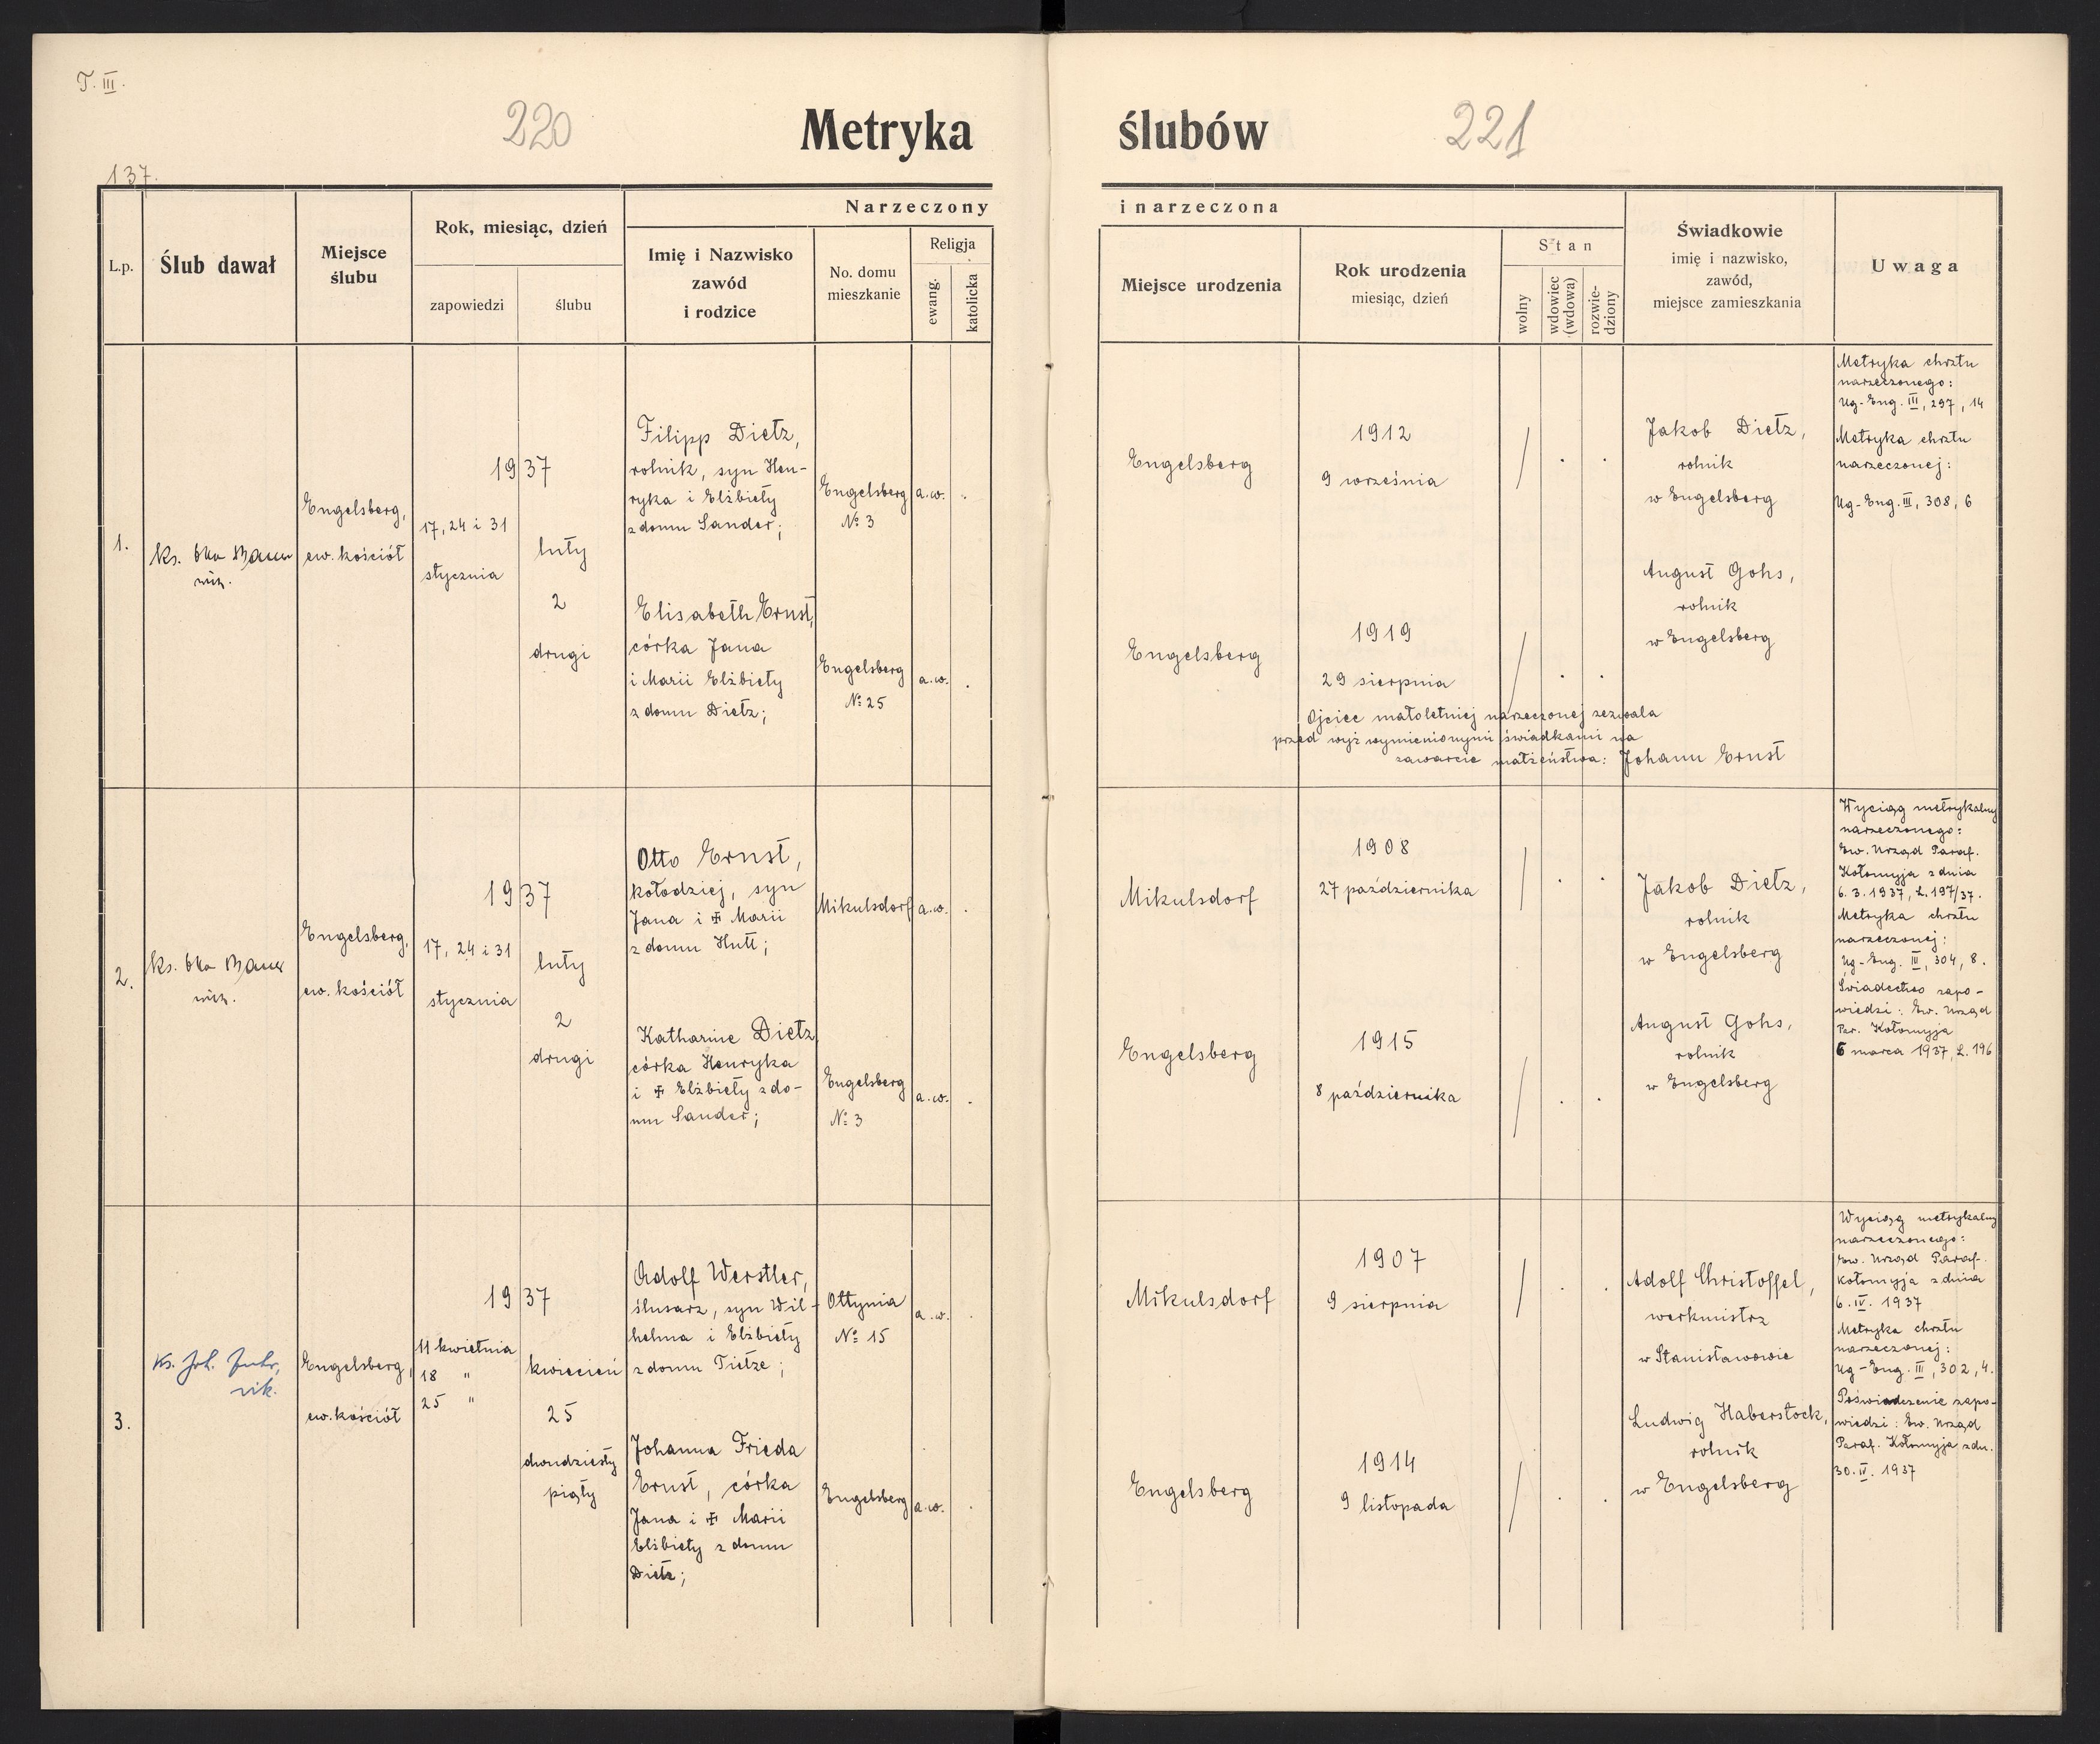 T. III.
220
Metryka
137.
L.p.
Ślub dawał
Miejsce
ślubu
Rok, miesiąc, dzień
zapowiedzi
ślubu
Narzeczony
Imię i Nazwisko
zawód
i rodzice
No. domu
mieszkanie
Religja
ewang.
katolicka
1.
ks.
Engelsberg,
ew. kościół
1937
17, 24 i 31
stycznia
luty
2
drugi
Filipp Dietz,
rolnik, syn Hen-
ryka i Elżbiety
z domu Sander;
Engelsberg
№ 3
a.w.
Elisabeth Ernst,
córka Jana
i Marii Elżbiety
z domu Dietz;
Engelsberg
№ 25
a.w.
2.
ks.
Engelsberg,
ew. kościół
1937
17, 24 i 31
stycznia
luty
2
drugi
Otto Ernst,
kołodziej, syn
Jana i ✠ Marii
z domu Hutt;
Mikulsdorf
a.w.
Katharine Dietz
córka Henryka
i ✠ Elżbiety z do-
mu Sander;
Engelsberg
№ 3
a.w.
3.
ks. Joh.
wik.
Engelsberg,
ew. kościół
1937
11 kwietnia
18 "
25 "
kwiecień
25
dwudziesty
piąty
Adolf Werstler,
ślusarz, syn Wil-
helma i Elżbiety
z domu Tietze;
Ottynia
№ 15
a.w.
Johanna Frieda
Ernst, córka
Jana i ✠ Marii
Elżbiety z domu
Dietz;
Engelsberg
a.w.
ślubów
221
i narzeczona
Miejsce urodzenia
Rok urodzenia
miesiąc, dzień
Stan
wolny
wdowiec
(wdowa)
rozwie-
dziony
Świadkowie
imię i nazwisko,
zawód,
miejsce zamieszkania
Uwaga
Engelsberg
1912
9 września
Jakob Dietz,
rolnik
w Engelsberg
Metryka chrztu
narzeczonego:
Ug-Eng. III, 297, 14
Metryka chrztu
narzeczonej:
Ug-Eng. III, 308, 6
Engelsberg
1919
29 sierpnia
August Gohs,
rolnik
w Engelsberg
Ojciec małoletniej narzeczonej zezwala
przed wyż wymienionymi świadkami na
zawarcie małżeństwa: Johann Ernst
Mikulsdorf
1908
27 października
Jakob Dietz,
rolnik
w Engelsberg
Engelsberg
1915
8 października
August Gohs,
rolnik
w Engelsberg
Wyciąg metrykalny
narzeczonego:
Ew. Urząd Paraf.
Kołomyja z dnia
6.3.1937, L. 197/37.
Metryka chrztu
narzeczonej:
Ug-Eng. III, 304, 8.
Świadectwo zapo-
wiedzi: Ew. Urząd
Par. Kołomyja
6 marca 1937, L. 196
Mikulsdorf
1907
9 sierpnia
Adolf Christoffel,
werkmistrz
w Stanisławowie
Engelsberg
1914
9 listopada
Ludwig Haberstock,
rolnik
w Engelsberg
Wyciąg metrykalny
narzeczonego:
Ew. Urząd Paraf.
Kołomyja z dnia
6. IV. 1937
Metryka chrztu
narzeczonej:
Ug-Eng. III, 302, 4.
Poświadczenie zapo-
wiedzi: Ew. Urząd
Paraf. Kołomyja z dn.
30. IV. 1937